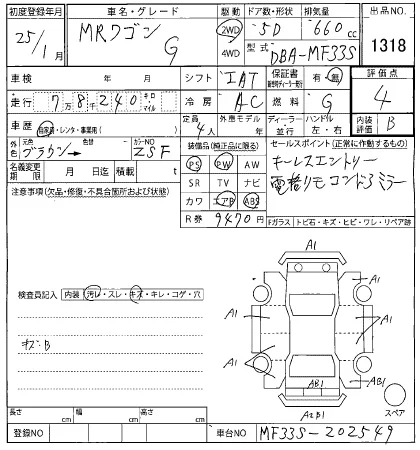 初度登録年月 車名・グレード 駆動 ドア数・形状 排気量 出品NO.
25/1月 MRワゴン G 2WD 5D 660cc
4WD 型式 DBA-MF33S 1318
車検 年 月 シフト IAT 保証書 有・無 評価点
走行 7万8千240 キロ・マイル 冷房 AC 燃料 G 4
車歴 自家用・レンタ・事業用( ) 定員 4人 外車モデル 年 ディーラー・並行 ハンドル 左・右 内装評価 B
外色 元色 ブラウン→ 色替 カラーNO ZSF 装備品(純正品に限る) セールスポイント(正常に作動するもの)
名義変更期限 月 日迄 積載 t PS PW AW キーレスエントリー
注意事項(欠品・修復・不具合箇所および状態) SR TV ナビ 電格リモコンドアミラー
カワ エアB ABS
R券 9470円 Fガラス トビ石・キズ・ヒビ・ワレ・リペア跡
A1
検査員記入 内装 汚レ・スレ・キズ・キレ・コゲ・穴
A1 A1
キズ:B
A1 A1
AB1 AB1
スペア
長さ cm 幅 cm 高さ cm A2B1
登録NO 車台NO MF33S-202549